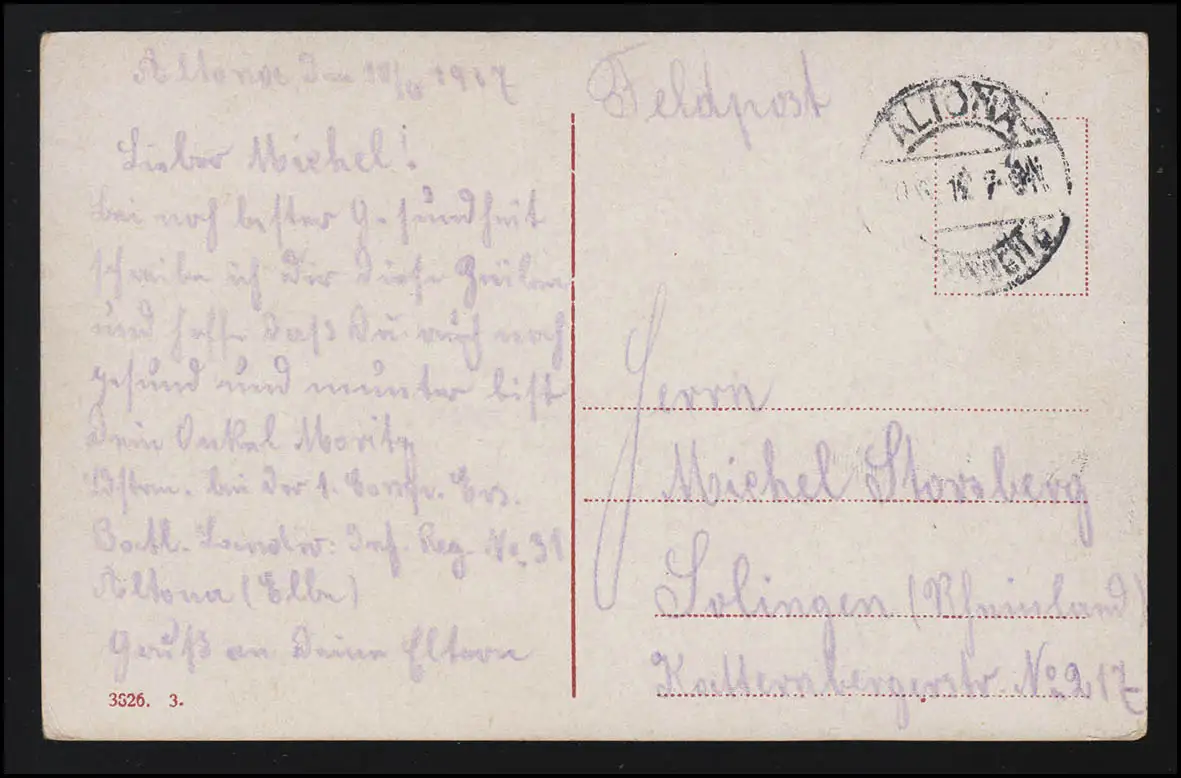 Altona den 10/6 1917
Lieber Michel!
Bei noch bester Gesundheit
schreibe ich Dir diese Zeilen
und hoffe daß Du auch noch
gesund und munter bist
Dein Onkel Moritz
Ldstrm. bei der 1. Comp. Ers.
Batl. Landw: Inf. Reg. No 31
Altona (Elbe)
Gruß an Deine Eltern
3826. 3.
Feldpost
ALTONA
7-8N
Herrn
Michel Storsberg
Solingen (Rheinland)
Katternbergerstr. No 217